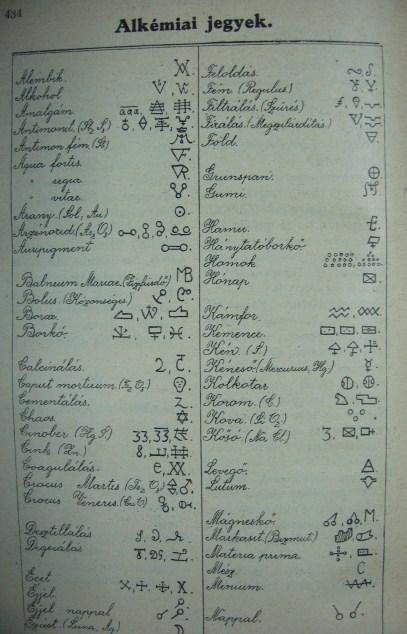 434
Alkémiai jegyek.
Alembik.
Alkohol
Amalgám.
Antimonul.
Antimon fém.
Aqua fortis.
" regia.
" vitae.
Arany. (Sol, Au)
Arzenoxid
Auripigment
Balneum Mariae.
Bolus. (Közönséges)
Borax.
Borkő.
Calcinálás.
Caput mortuum.
Cementálás.
Chaos.
Cinober (Hg S)
Cink (Zn.)
Coagulálás.
Crocus Martes
Crocus Veneris.
Desztillálás
Digerálás
Ecet
Éjjel.
Éjjel nappal
Ezüst (Luna, Ag)
Feloldás.
Fém. (Regulus)
Filtrálás. (Szűrés)
Fixálás. (Megszilárdítás)
Föld.
Grünspan.
Gumi.
Hamu.
Hánytatóborkő.
Homok
Hónap
Kámfor.
Kemence.
Kén. (S.)
Kéneső. (Mercurius, Hg)
Kolkotar
Korom. (C.)
Kova.
Kősó. (Na Cl)
Levegő.
Lutum.
Mágneskő.
Markasit. (Bizmut)
Materia prima.
Mész
Minium.
Nappal.